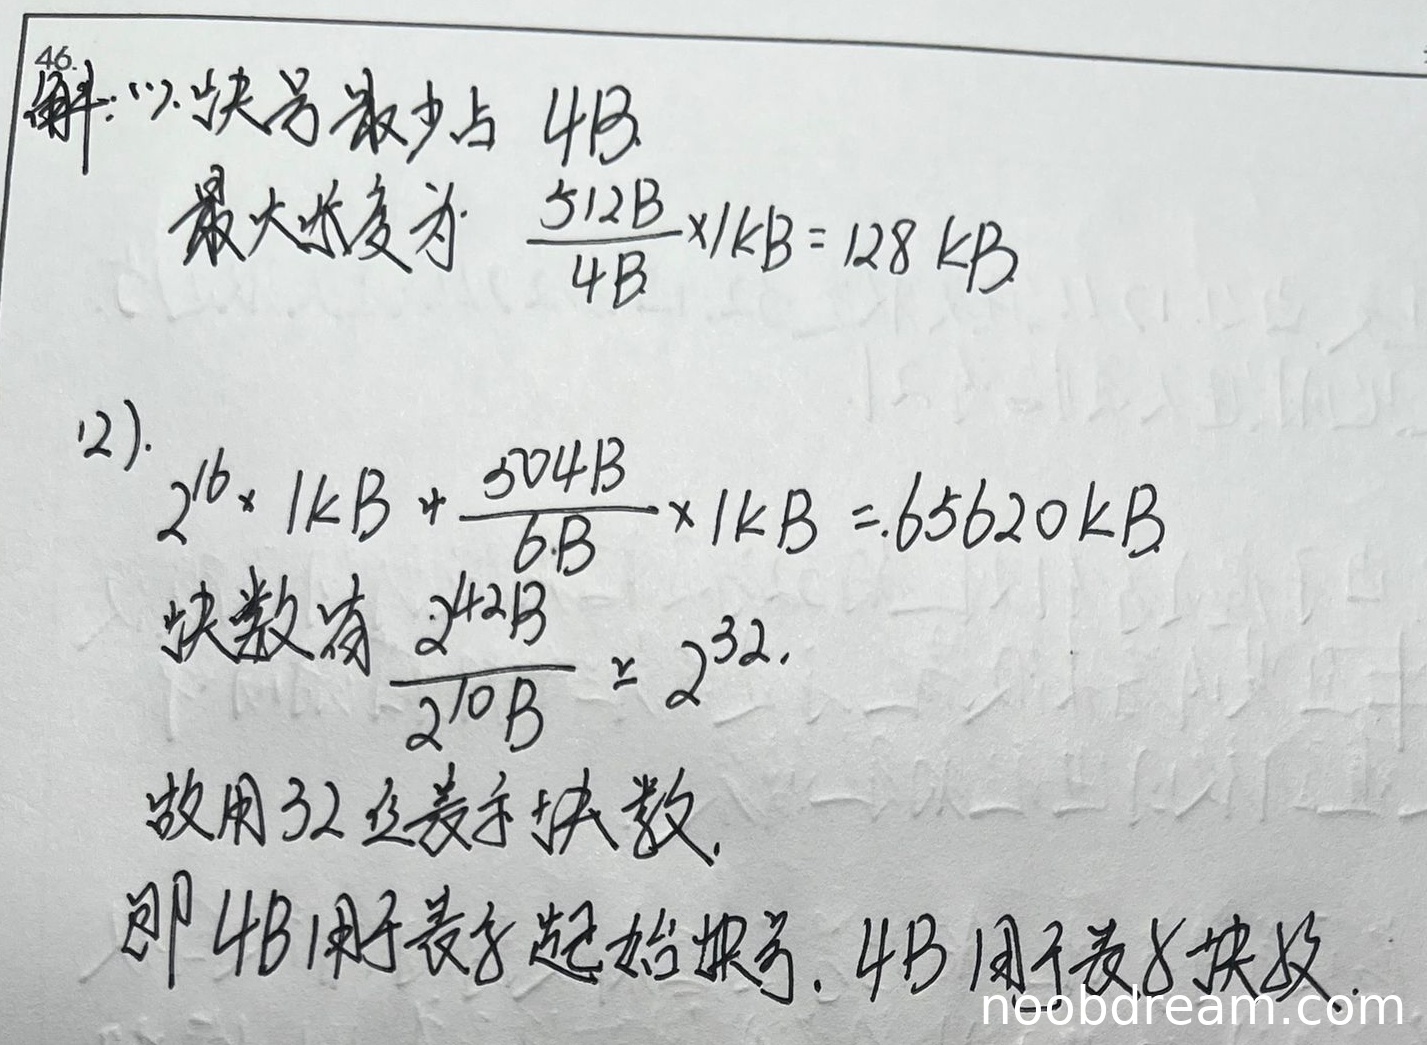 46.
解:(1).块号最少占 4B.
最大长度为 512B/4B ×1KB=128KB.
(2).
2^16 × 1KB + 504B/6B × 1KB =65620KB.
块数有 2^42B/2^10B = 2^32.
故用32位表示块数.
即4B用于表示起始块号.4B用于表示块数.
noobdream.com